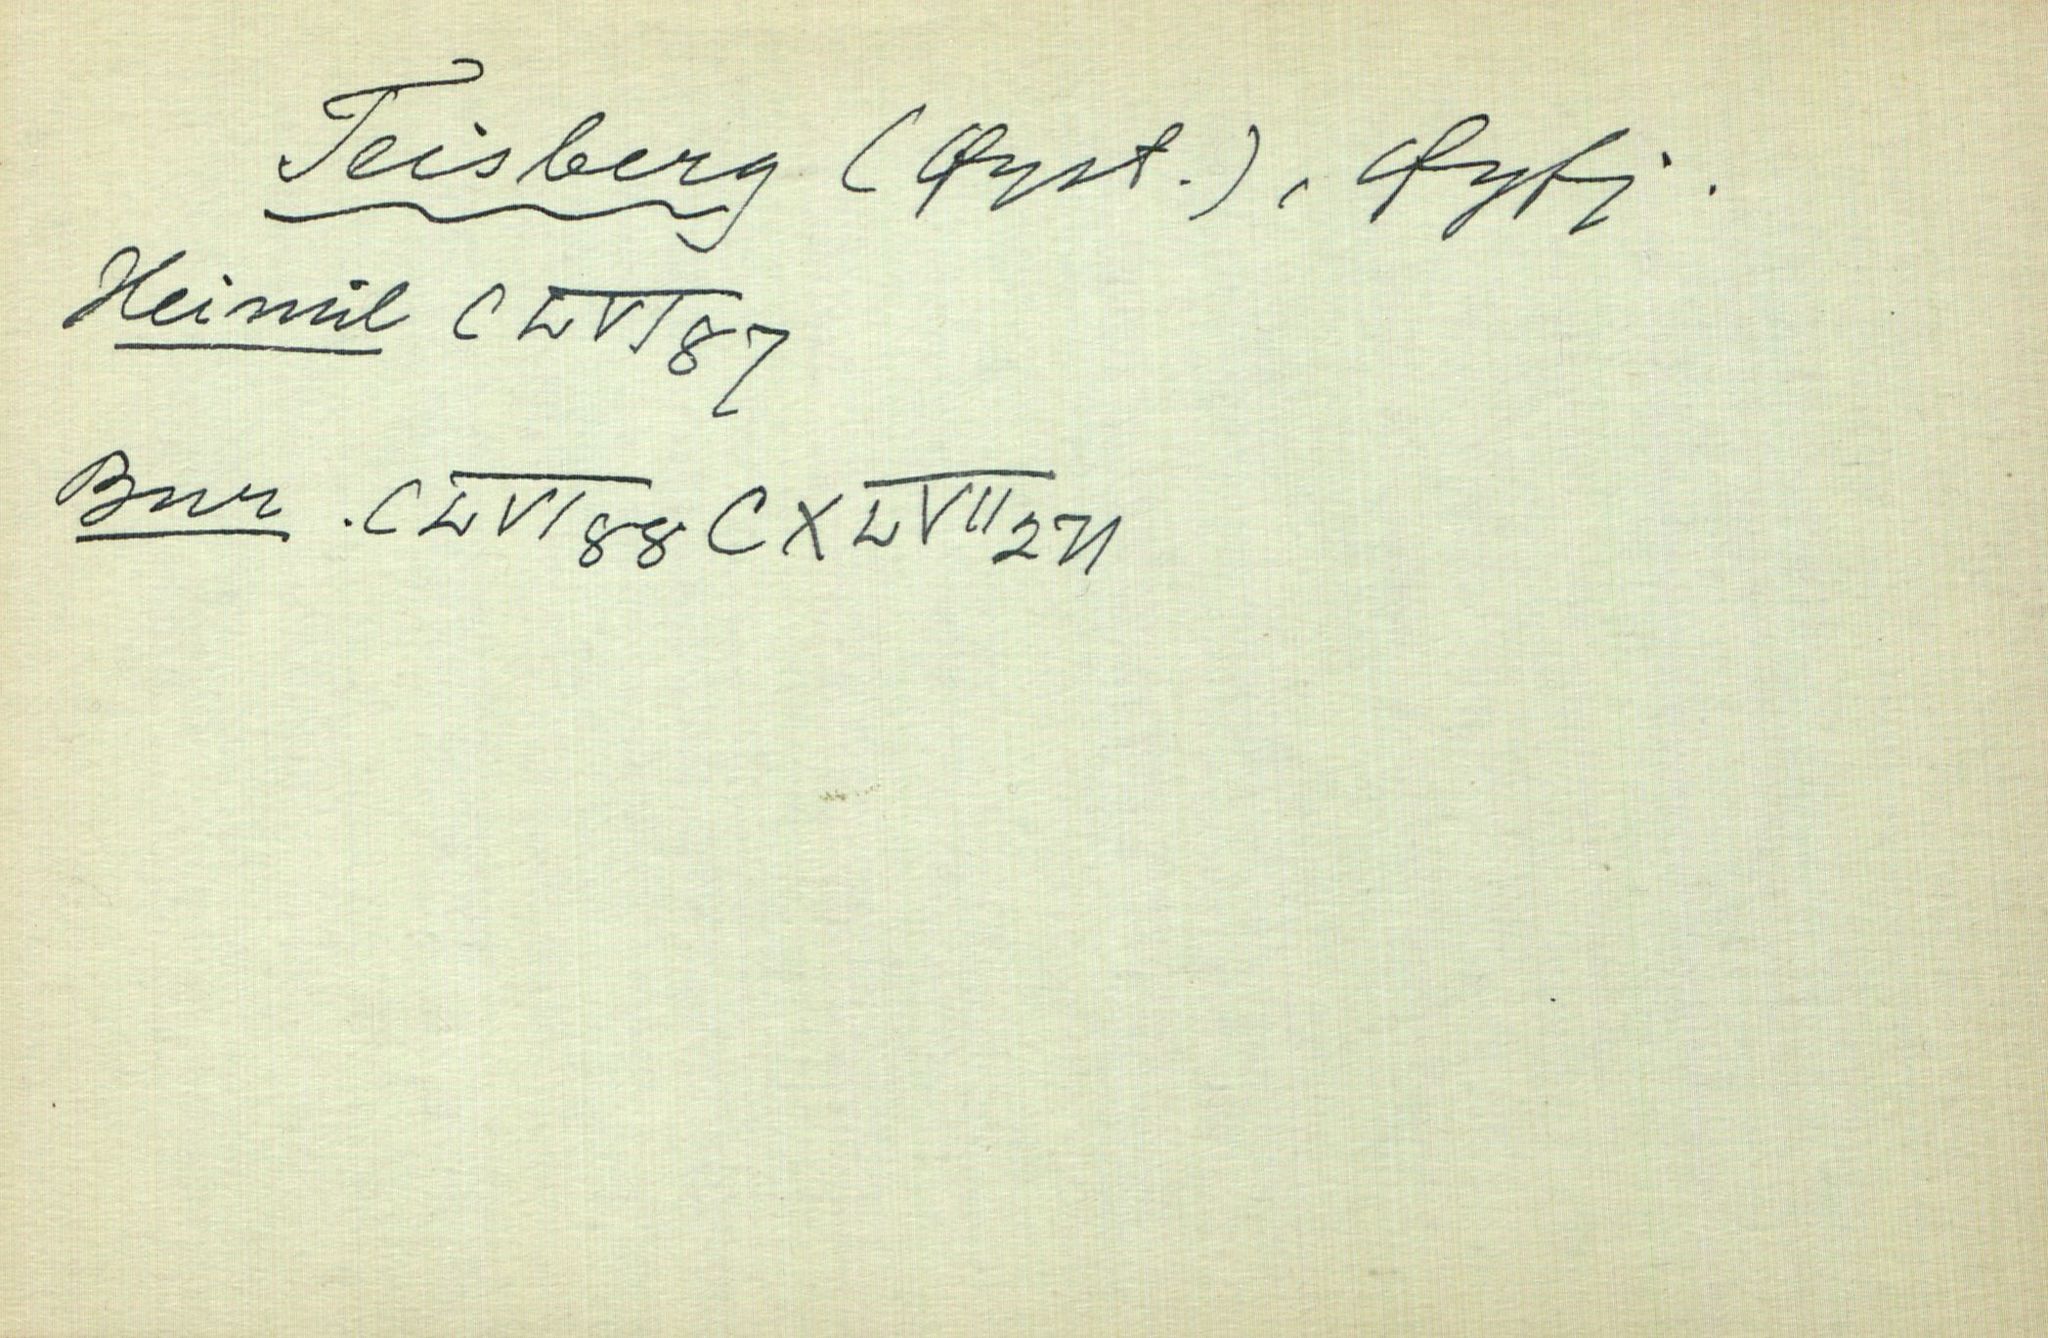 Teisberg (Øyst.), Øyfj.
Heimil CLVI 87
Bur. CLVI 88 CXLVII 271